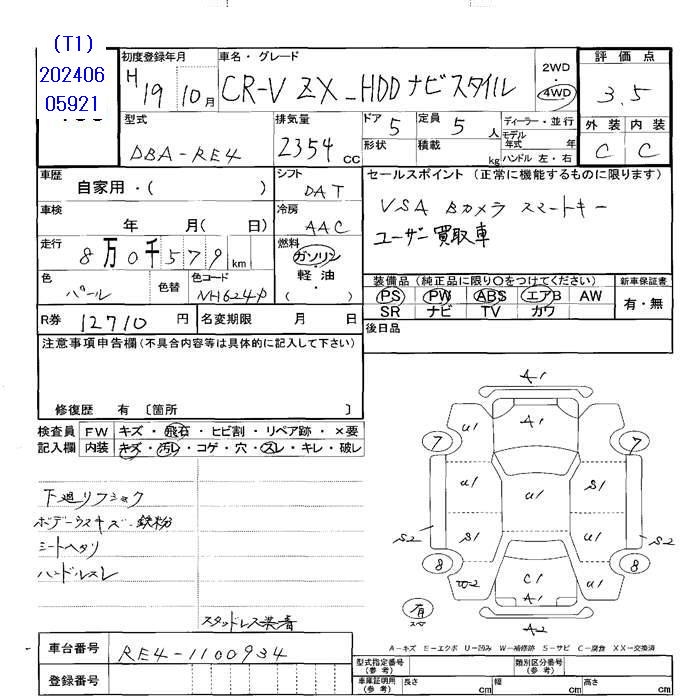 (T1)
202406
05921
初度登録年月
H 19 10月
車名・グレード
CR-V ZX_HDDナビスタイル
2WD
4WD
評価点
3.5
型式
DBA-RE4
排気量
2354 CC
ドア 5
定員 5 人
ディーラー・並行
モデル年式 年
形状
積載 kg
ハンドル 左・右
外装 内装
C C
車歴
自家用・( )
シフト
DAT
セールスポイント (正常に機能するものに限ります)
VSA Bカメラ スマートキー
ユーザー買取車
車検
年 月( 日)
冷房
AAC
走行
8万0千579 km
燃料
ガソリン
・軽油
( )
色
パール
色替
色コード
NH624P
装備品 (純正品に限り○をつけてください)
PS PW ABS エアB AW
SR ナビ TV カワ
新車保証書
有・無
R券 12710 円
名変期限 月 日
後日品
注意事項申告欄 (不具合内容等は具体的に記入して下さい)
修復歴 有 〔箇所 〕
検査員記入欄
FW キズ・飛石・ヒビ割・リペア跡・×要
内装 キズ・汚レ・コゲ・穴・スレ・キレ・破レ
下廻りフショク
ボデーウスキズ・鉄粉
シートヘタリ
ハンドルスレ
スタッドレス装着
A1
U1 A1
7 7
U1 U1 S1
S2 S1 U1 U1 S2
8 8
W2 C1 U1
A1
有
A2
A-キズ E-エクボ U-凹み W-補修跡 S-サビ C-腐食 XX-交換済
車台番号 RE4-1100934
登録番号
型式指定番号 (参考)
類別区分番号 (参考)
車庫証明用 (参考) 長さ cm 幅 cm 高さ cm